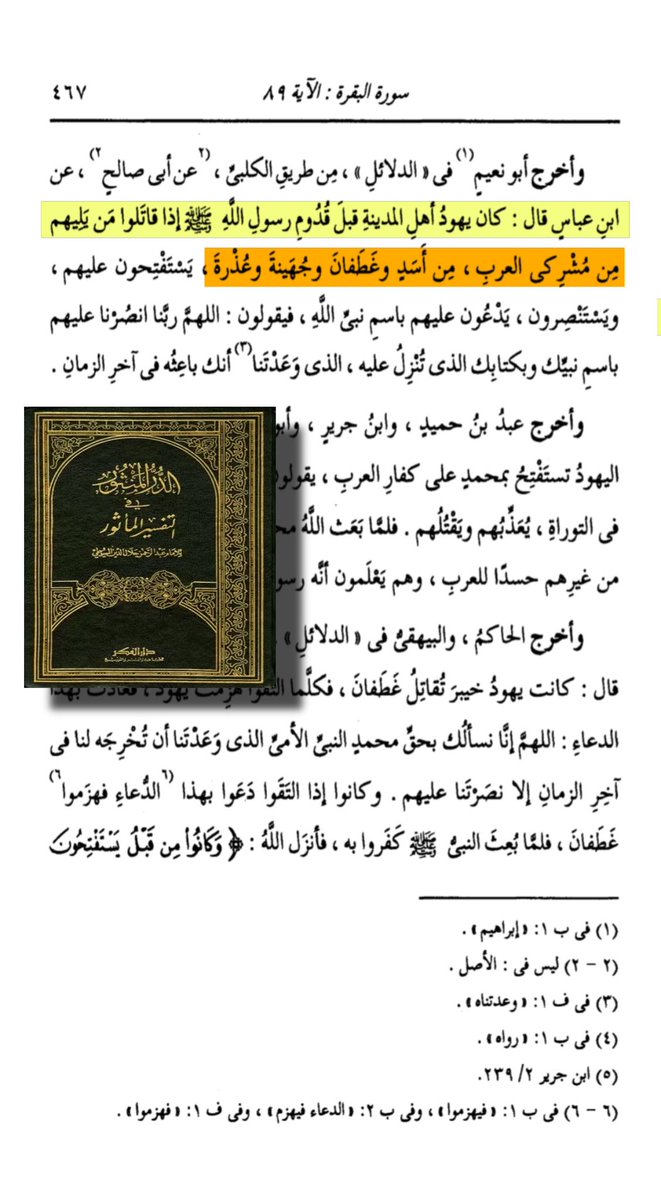 سورة البقرة : الآية ٨٩
٤٦٧
وأخرج أبو نعيمٍ(١) فى « الدلائلِ » ، مِن طريقِ الكلبىِّ ، (٢عن أبى صالحٍ٢) ، عن
ابنِ عباسٍ قال : كان يهودُ أهلِ المدينةِ قبلَ قُدُومِ رسولِ اللَّهِ ﷺ إذا قاتَلوا مَن يَلِيهم
مِن مُشْرِكى العربِ ، مِن أَسَدٍ وغَطَفانَ وجُهَينةَ وعُذْرةَ ، يَسْتَفْتِحون عليهم ،
ويَسْتَنْصِرون ، يَدْعُون عليهم باسمِ نبىِّ اللَّهِ ، فيقولون : اللهمَّ ربَّنا انصُرْنا عليهم
باسمِ نبيِّك وبكتابِك الذى تُنْزِلُ عليه ، الذى وَعَدْتَنا(٣) أنك باعِثُه فى آخرِ الزمانِ .
وأخرج عبدُ بنُ حميدٍ ، وابنُ جريرٍ ، وأبو
اليهودُ تستَفْتِحُ بمحمدٍ على كفارِ العربِ ، يقولون
فى التوراةِ ، يُعَذِّبُهم ويَقْتُلُهم . فلمَّا بَعَث اللَّهُ
من غيرِهم حسدًا للعربِ ، وهم يَعْلَمون أنَّه
وأخرج الحاكمُ ، والبيهقىُّ فى « الدلائلِ »
قال : كانت يهودُ خيبرَ تُقاتِلُ غَطَفانَ ، فكلَّما التَقَوا هُزِمت يهودُ ، فعاذت بهذا
الدعاءِ : اللهمَّ إنَّا نسألُك بحقِّ محمدٍ النبىِّ الأمىِّ الذى وَعَدْتَنا أن تُخْرِجَه لنا فى
آخِرِ الزمانِ إلا نصَرْتَنا عليهم . وكانوا إذا التَقَوا دَعَوا بهذا (٦الدُّعاءِ فهزَموا٦)
غَطَفانَ ، فلمَّا بُعِثَ النبىُّ ﷺ كَفَروا به ، فأنزَل اللَّهُ : ﴿ وَكَانُوا۟ مِن قَبْلُ يَسْتَفْتِحُونَ
الدر المنثور
فى
التفسير المأثور
للإمام عبد الرحمن جلال الدين السيوطى
دار الفكر
(١) فى ب ١: «إبراهيم» .
(٢ - ٢) ليس فى : الأصل .
(٣) فى ف ١: «وعدتناه» .
(٤) فى ب ١: «رواه» .
(٥) ابن جرير ٢/ ٢٣٩.
(٦ - ٦) فى ب ١: «فيهزموا» ، وفى ب ٢: «الدعاء فيهزم» ، وفى ف ١: «فهزموا» .